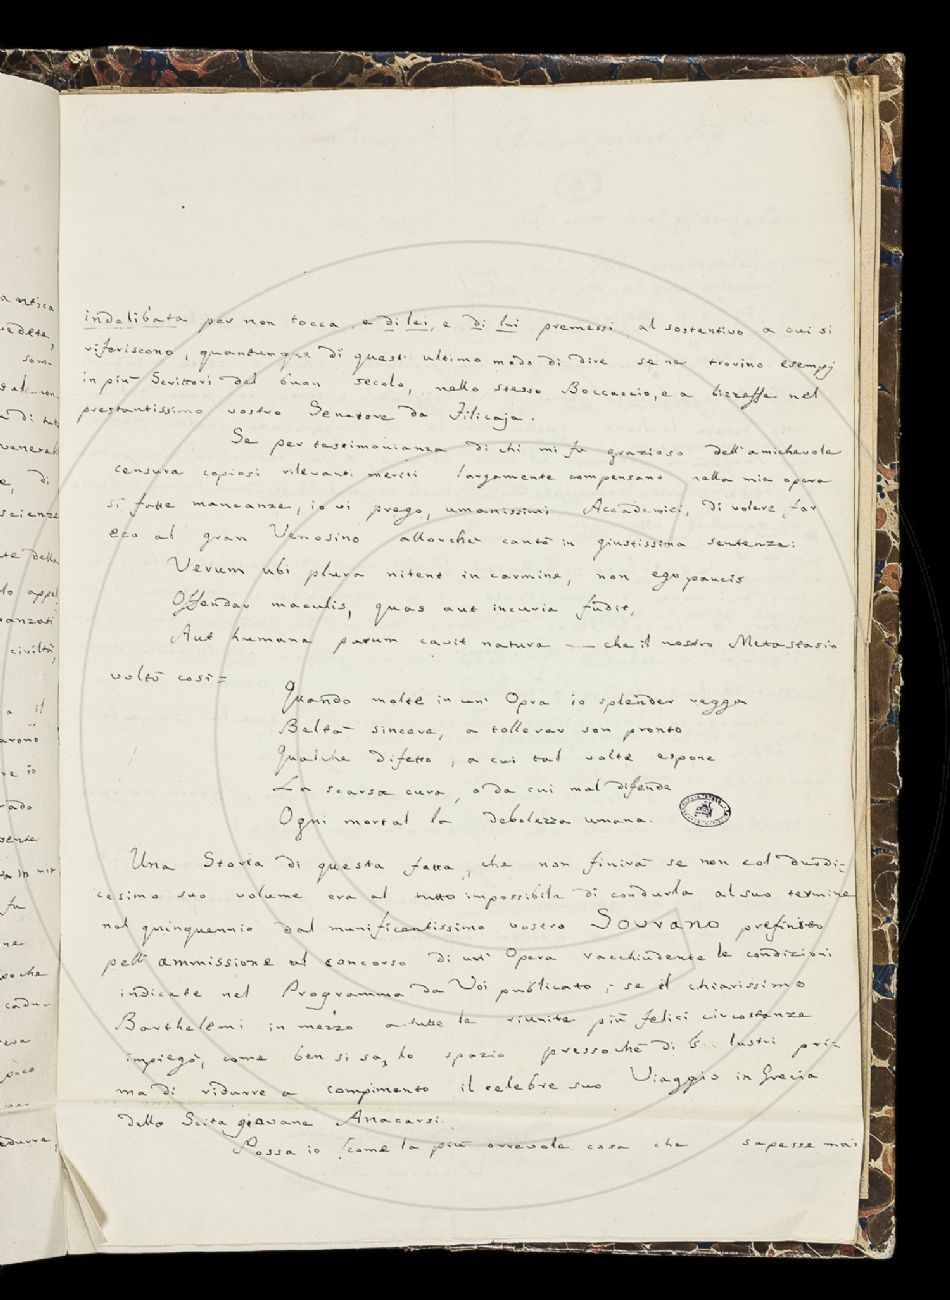 indelibata per non tocca, e di lei, e di lui premessi al sostantivo a cui si
riferiscono, quantunque di questi ultimo modo di dire se ne trovino esempj
in più Scrittori del buon secolo, nello stesso Boccaccio, e a bizzeffe nel
prestantissimo vostro Senatore da Filicaja.
Se per testimonianza di chi mi fu grazioso dell'amichevole
censura copiosi rilevanti meriti largamente compensano nella mia opera
sì fatte mancanze, io vi prego, umanissimi Accademici, di volere far
eco al gran Venosino allorchè cantò in giustissima sentenza:
Verum ubi plura nitent in carmine, non ego paucis
Offendar maculis, quas aut incuria fudit,
Aut humana parum cavit natura — che il nostro Metastasio
voltò così=
Quando molte in un' Opra io splender vegga
Beltà sincere, a tollerar son pronto
Qualche difetto, a cui tal volta espone
La scarsa cura, o da cui mal difende
Ogni mortal la debolezza umana.
Una Storia di questa fatta, che non finirà se non col duodi-
cesimo suo volume era al tutto impossibile di condurla al suo termine
nel quinquennio dal munificentissimo vostro Sovrano prefinito
pell' ammissione al concorso di un' Opera racchiudente le condizioni
indicate nel Programma da Voi publicato; se il chiarissimo
Barthelemi in mezzo a tutte le riunite più felici circostanze
impiegò, come ben si sa, lo spazio pressochè di lustri pri-
ma di ridurre a compimento il celebre suo Viaggio in Grecia
dello Scita giovane Anacarsi.
Possa io (come la più orrevole cosa che sapesse mai